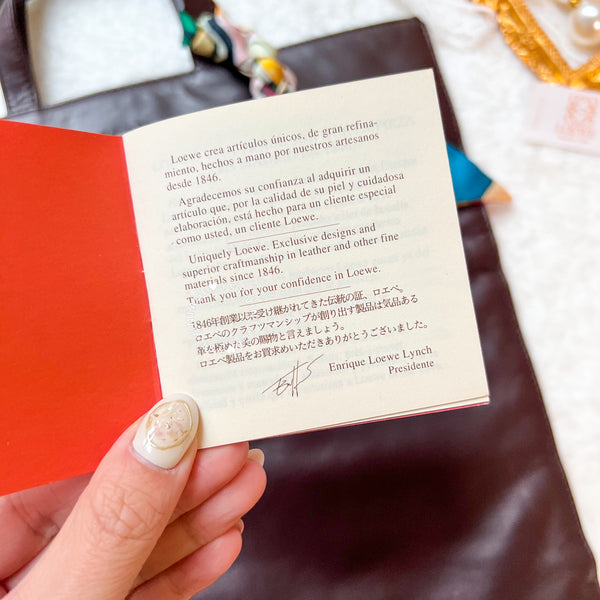 Loewe crea artículos únicos, de gran refina-
miento, hechos a mano por nuestros artesanos
desde 1846.
Agradecemos su confianza al adquirir un
artículo que, por la calidad de su piel y cuidadosa
elaboración, está hecho para un cliente especial
como usted, un cliente Loewe.
Uniquely Loewe. Exclusive designs and
superior craftmanship in leather and other fine
materials since 1846.
Thank you for your confidence in Loewe.
1846年創業以来受け継がれてきた伝統の証、ロエベ。
ロエベのクラフツマンシップが創り出す製品は気品ある
革を極めた美の賜物と言えましょう。
ロエベ製品をお買求めいただきありがとうございました。
Enrique Loewe Lynch
Presidente